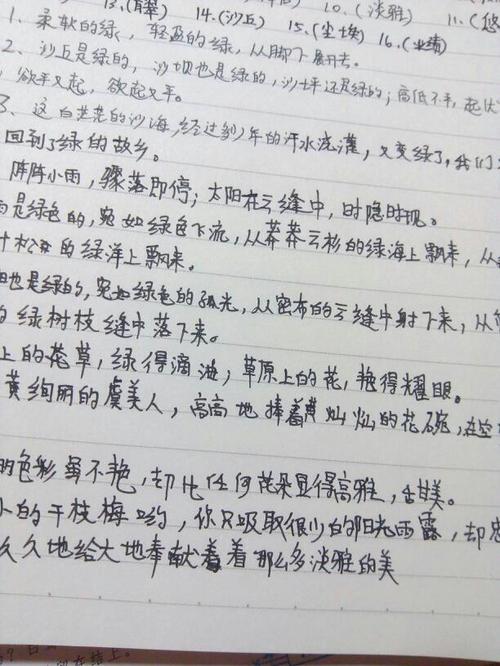 13.(背翠) 14.(沙丘) 15.(尘埃) 10.(淡雅) 11.(悠
16.(业绩)
1、柔软的绿，轻盈的绿，从脚下展开去。
2、沙丘是绿的，沙坝也是绿的，沙坪还是绿的；高低不平，起伏
欲平又起，欲起又平。
3、这白茫茫的沙海，经过多少年的汗水浇灌，又变绿了，我们
回到了绿的故乡。
阵阵小雨，骤落即停；太阳在云缝中，时隐时现。
雨是绿色的，宛如绿色下流，从莽莽云杉的绿海上飘来，从
叶松的绿洋上飘来。
阳也是绿的，宛如绿色的弧光，从密布的云缝中射下来，从
的绿树枝缝中落下来。
上的花草，绿得滴油；草原上的花，艳得耀眼。
黄绚丽的虞美人，高高地捧着黄灿灿的花碗，在空
的色彩虽不艳，却比任何花朵显得高雅，甜美。
小的干枝梅哟，你只吸取很少的阳光雨露，却
久久地给大地奉献着着那么多淡雅的美